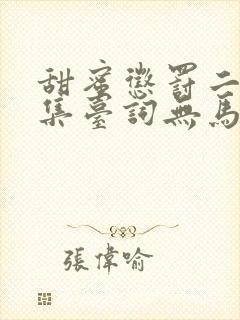 甜蜜懲罰二
集臺詞無馬
張偉喻